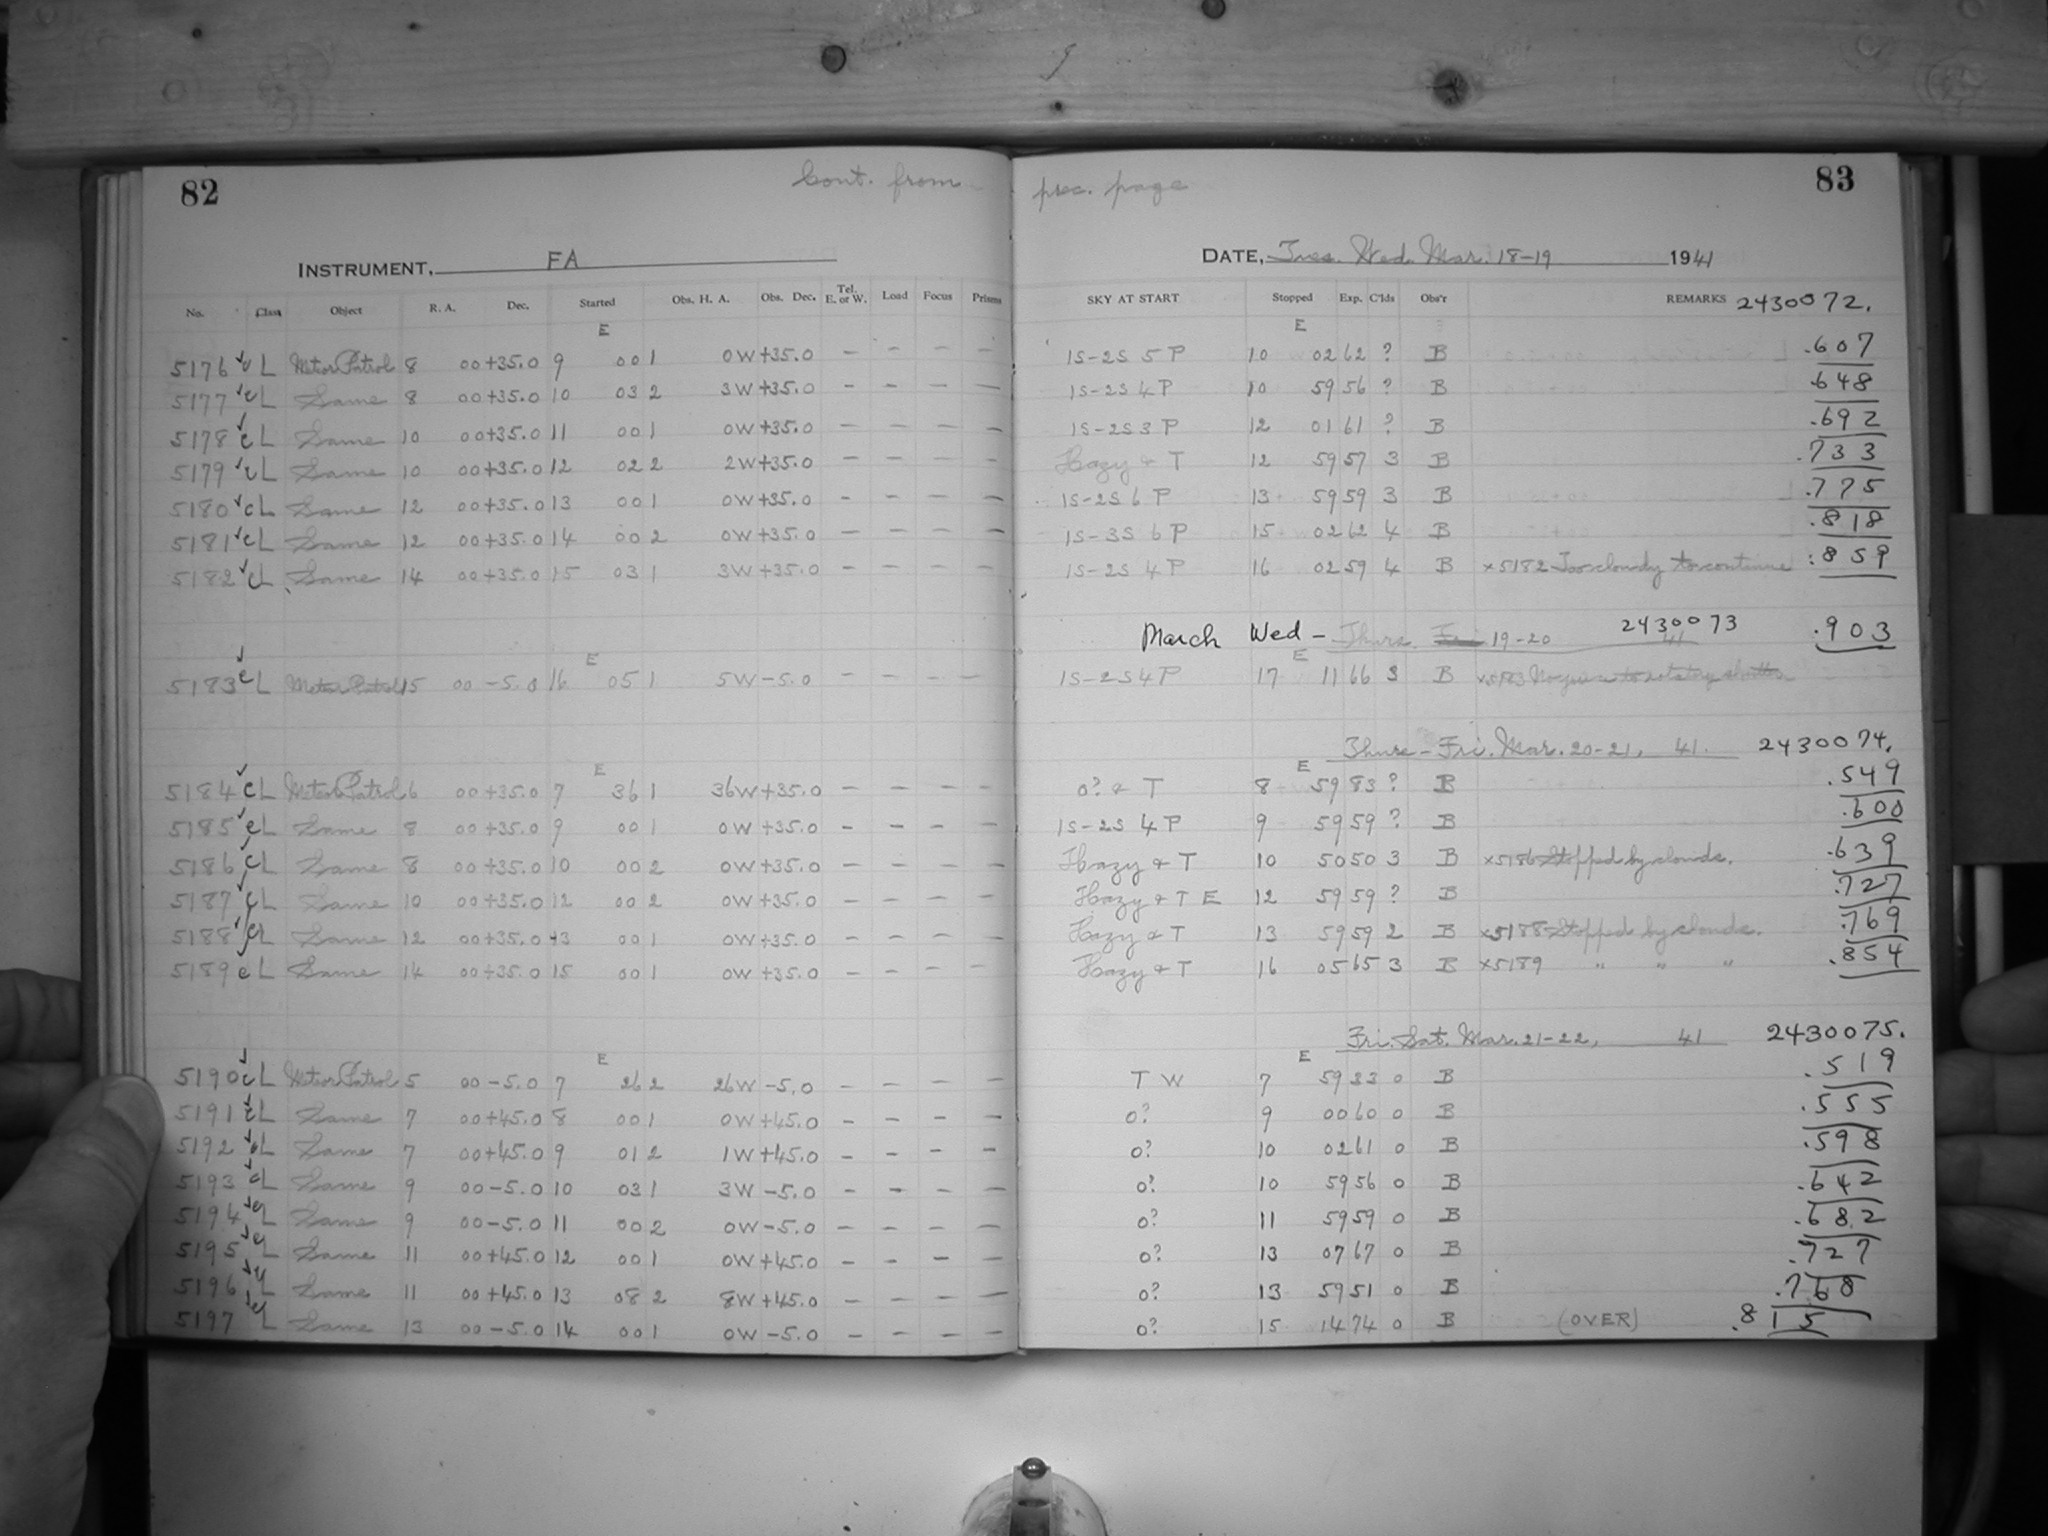 82
Cont. from
INSTRUMENT, FA
No. Class Object R. A. Dec. Started Obs. H. A. Obs. Dec. Tel. E. or W. Load Focus Prism
E
5176 ✓ c L Meteor Patrol 8 00 +35.0 9 00 1 0W +35.0 – – – –
5177 ✓ c L Same 8 00 +35.0 10 03 2 3W +35.0 – – – –
5178 ✓ c L Same 10 00 +35.0 11 00 1 0W +35.0 – – – –
5179 ✓ c L Same 10 00 +35.0 12 02 2 2W +35.0 – – – –
5180 ✓ c L Same 12 00 +35.0 13 00 1 0W +35.0 – – – –
5181 ✓ c L Same 12 00 +35.0 14 00 2 0W +35.0 – – – –
5182 ✓ c L Same 14 00 +35.0 15 03 1 3W +35.0 – – – –
E
5183 ✓ c L Meteor Patrol 15 00 –5.0 16 05 1 5W –5.0 – – – –
E
5184 ✓ c L Meteor Patrol 6 00 +35.0 7 36 1 36W +35.0 – – – –
5185 ✓ c L Same 8 00 +35.0 9 00 1 0W +35.0 – – – –
5186 ✓ c L Same 8 00 +35.0 10 00 2 0W +35.0 – – – –
5187 ✓ c L Same 10 00 +35.0 12 00 2 0W +35.0 – – – –
5188 ✓ c L Same 12 00 +35.0 13 00 1 0W +35.0 – – – –
5189 c L Same 14 00 +35.0 15 00 1 0W +35.0 – – – –
E
5190 ✓ c L Meteor Patrol 5 00 –5.0 7 26 2 26W –5.0 – – – –
5191 ✓ c L Same 7 00 +45.0 8 00 1 0W +45.0 – – – –
5192 ✓ c L Same 7 00 +45.0 9 01 2 1W +45.0 – – – –
5193 ✓ c L Same 9 00 –5.0 10 03 1 3W –5.0 – – – –
5194 ✓ c L Same 9 00 –5.0 11 00 2 0W –5.0 – – – –
5195 ✓ c L Same 11 00 +45.0 12 00 1 0W +45.0 – – – –
5196 ✓ c L Same 11 00 +45.0 13 08 2 8W +45.0 – – – –
5197 ✓ c L Same 13 00 –5.0 14 00 1 0W –5.0 – – – –
prec. page
83
DATE, Tues. Wed. Mar. 18-19 1941
SKY AT START Stopped Exp. C'lds Obs'r REMARKS 2430072.
E
1S-2S 5 P 10 02 62 ? B .607
1S-2S 4 P 10 59 56 ? B .648
1S-2S 3 P 12 01 61 ? B .692
Hazy & T 12 59 57 3 B .733
1S-2S 6 P 13 59 59 3 B .775
1S-3S 6 P 15 02 62 4 B .818
1S-2S 4 P 16 02 59 4 B x5182 Too cloudy to continue .859
March Wed - Thurs. Fri 19-20 41 2430073 .903
E
1S-2S 4 P 17 11 66 3 B x5183 to rotating shutter
Thurs - Fri. Mar. 20-21, 41. 2430074.
E
0? & T 8 59 83 ? B .549
1S-2S 4 P 9 59 59 ? B .600
Hazy & T 10 50 50 3 B x5186 Stopped by clouds. .639
Hazy & T E 12 59 59 ? B .727
Hazy & T 13 59 59 2 B x5188 Stopped by clouds. .769
Hazy & T 16 05 65 3 B x5189 " " " .854
Fri. Sat. Mar. 21-22, 41 2430075.
E
T W 7 59 33 0 B .519
0? 9 00 60 0 B .555
0? 10 02 61 0 B .598
0? 10 59 56 0 B .642
0? 11 59 59 0 B .682
0? 13 07 67 0 B .727
0? 13 59 51 0 B .768
0? 15 14 74 0 B (OVER) .815